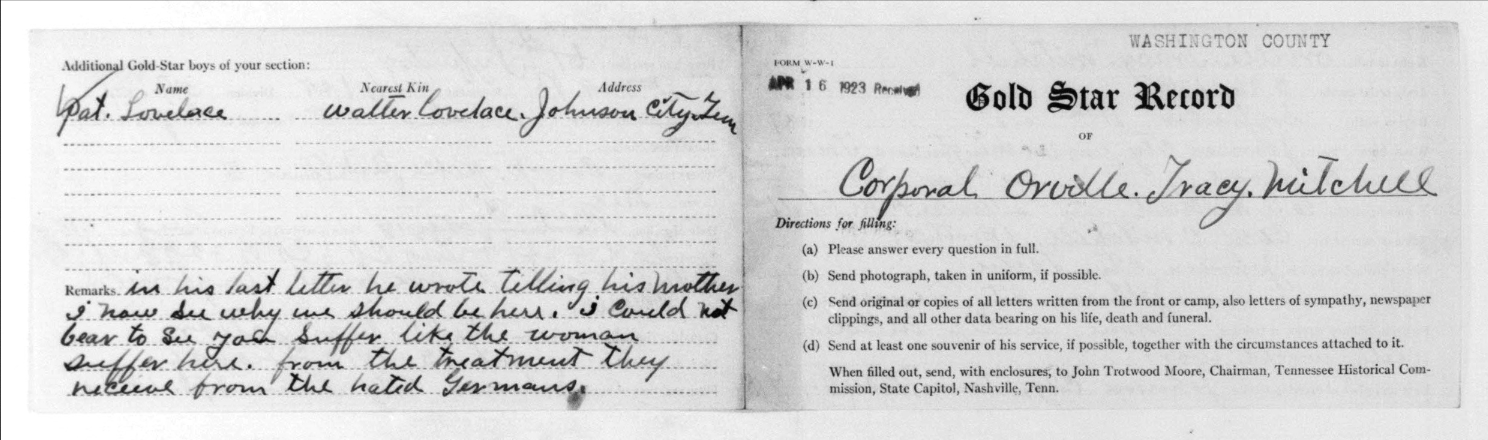 Additional Gold-Star boys of your section:
Name Nearest Kin Address
Pat. Lovelace Walter Lovelace. Johnson City. Tenn
Remarks in his last letter he wrote telling his mother
i now see why we should be here. i could not
bear to see you suffer like the woman
suffer here. from the treatment they
receive from the hated Germans.
WASHINGTON COUNTY
FORM W-W-1
APR 16 1923 Received
Gold Star Record
OF
Corporal Orville. Tracy. Mitchell
Directions for filling:
(a) Please answer every question in full.
(b) Send photograph, taken in uniform, if possible.
(c) Send original or copies of all letters written from the front or camp, also letters of sympathy, newspaper
clippings, and all other data bearing on his life, death and funeral.
(d) Send at least one souvenir of his service, if possible, together with the circumstances attached to it.
When filled out, send, with enclosures, to John Trotwood Moore, Chairman, Tennessee Historical Com-
mission, State Capitol, Nashville, Tenn.